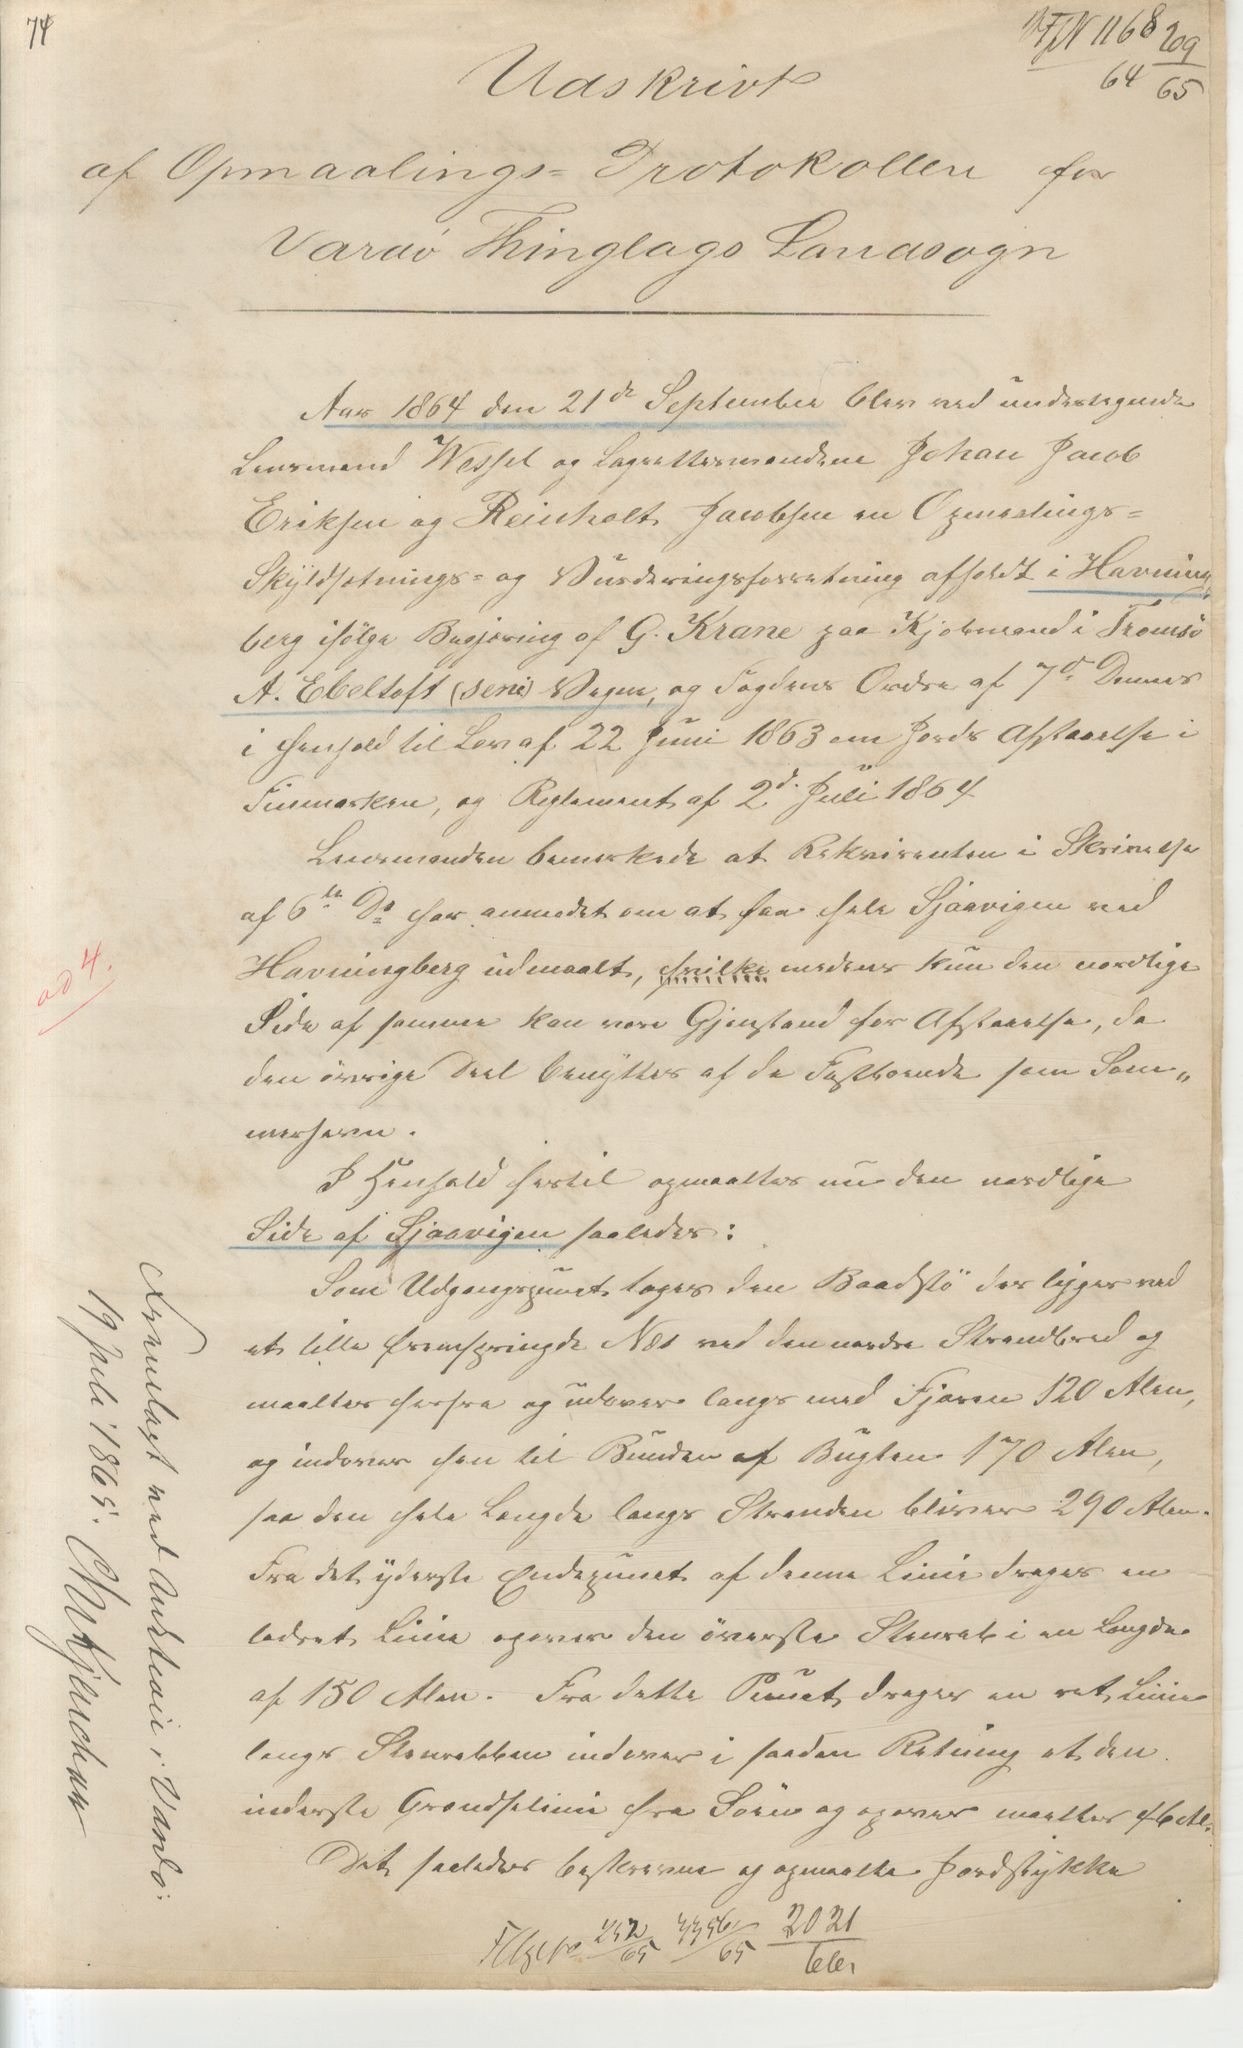 74
JN 1168/64 209/65
Udskrivt
af Opmaalings=Protokollen for
Vardø Thinglags Landsogn
Aar 1864 den 21de September blev ved undertegnede
Lensmand Wessel og Lagrettesmændene Johan Jacob
Eriksen og Reinholt Jacobsen en Opmaalings=
Skyldsætnings= og Vurderingsforretning afholdt i Havning
berg ifølge Begjæring af G. Krane paa Kjøbmand i Tromsø
A. Ebeltoft (seni) Vegne, og Fogdens Ordre af 7de Dennes
i Henhold til Lov af 22 Juni 1863 om Jords Afstaaelse i
Finmarken, og Reglement af 2d. Juli 1864
Lensmanden bemærkede at Rekvirenten i Skrivelse
af 6te Ds har anmodet om at faa hele Sjaavigen ved
Havningberg udmaalt, hvilke medens kun den nordlige
Side af samme kan være Gjenstand for Afstaaelse, da
den øvrige Deel benyttes af de Fastboende som Som„
merhavn.
I Henhold hertil opmaaltes nu den nordlige
Side af Sjaavigen saaledes:
Som Udgangspunct toges den Baadstø der ligger ved
et lille fremspringde Næs ved den nordre Strandbred og
maaltes herfra og udover langs med Fjæren 120 Alen,
og indover hen til Bunden af Bugten 170 Alen,
saa den hele Længde langs Stranden bliver 290 Alen.
Fra det yderste Endepunct af denne Linie drages en
lodret Linie opover den øverste Stenrab i en Længde
af 150 Alen. Fra dette Punct drages en ret Linie
langs Stenrabben indover i saadan Retning at den
inderste Grændselinie fra Søen og opover maaltes 46 Al.
Det saaledes beskrevne og opmaalte Jordstykke
ad 4.
Fremlagt ved Auktion i Vardø
19 Juli 1865.
252/65 2021